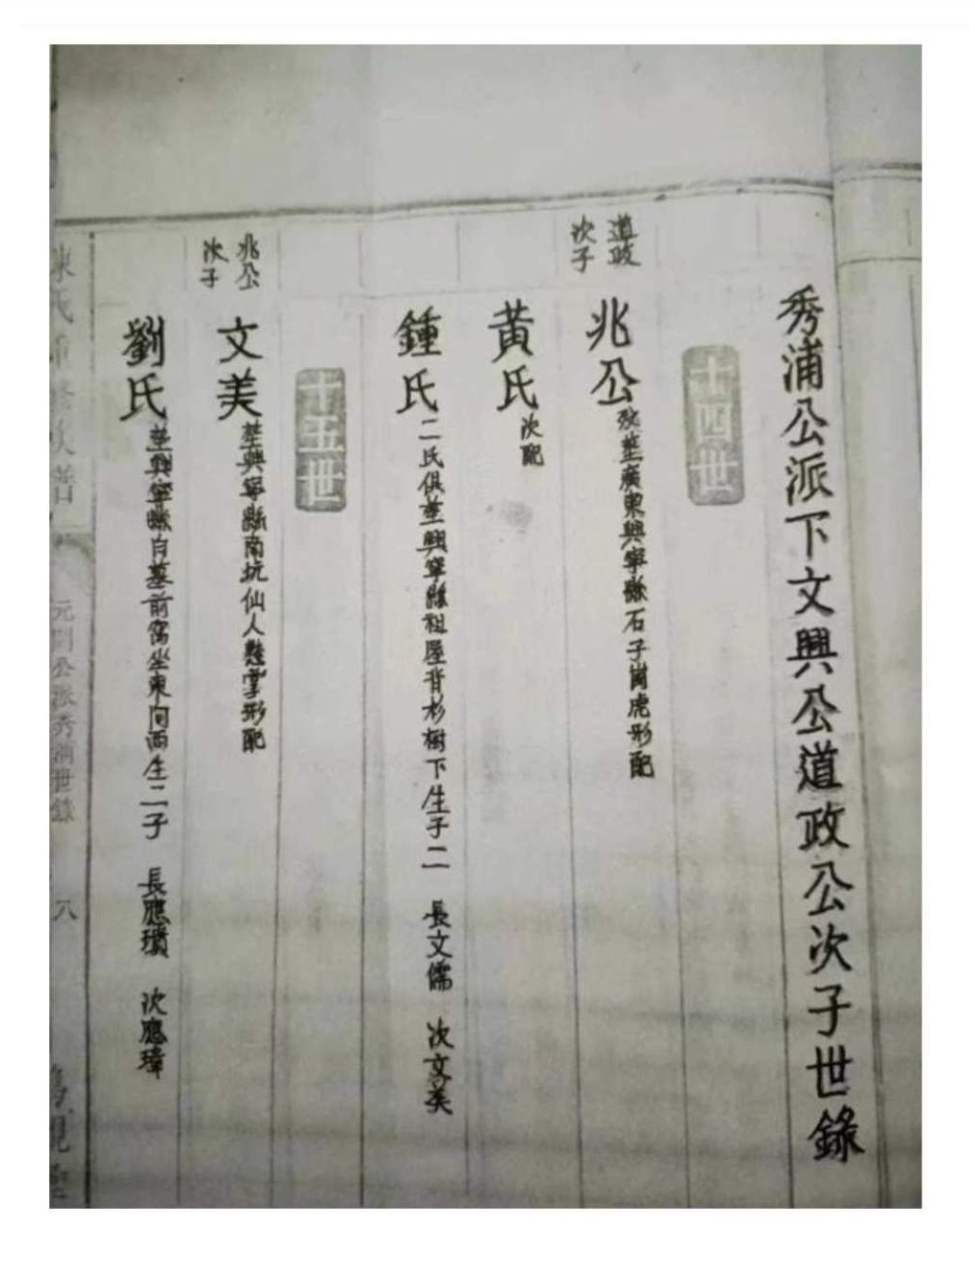 秀浦公派下文興公道政公次子世錄
十四世
道政
次子
兆公
歿塟廣東興寧縣石子崗虎形配
黃氏
次配
鍾氏
二氏俱塟興寧縣祖屋背杉樹下生子二 長文儒 次文美
十五世
兆公
次子
文美
塟興寧縣南坑仙人懸掌形配
劉氏
塟興寧縣白墓前窩坐東向西生二子 長應瓚 次應璋
氏重修族譜
元剛公派秀浦世錄
八